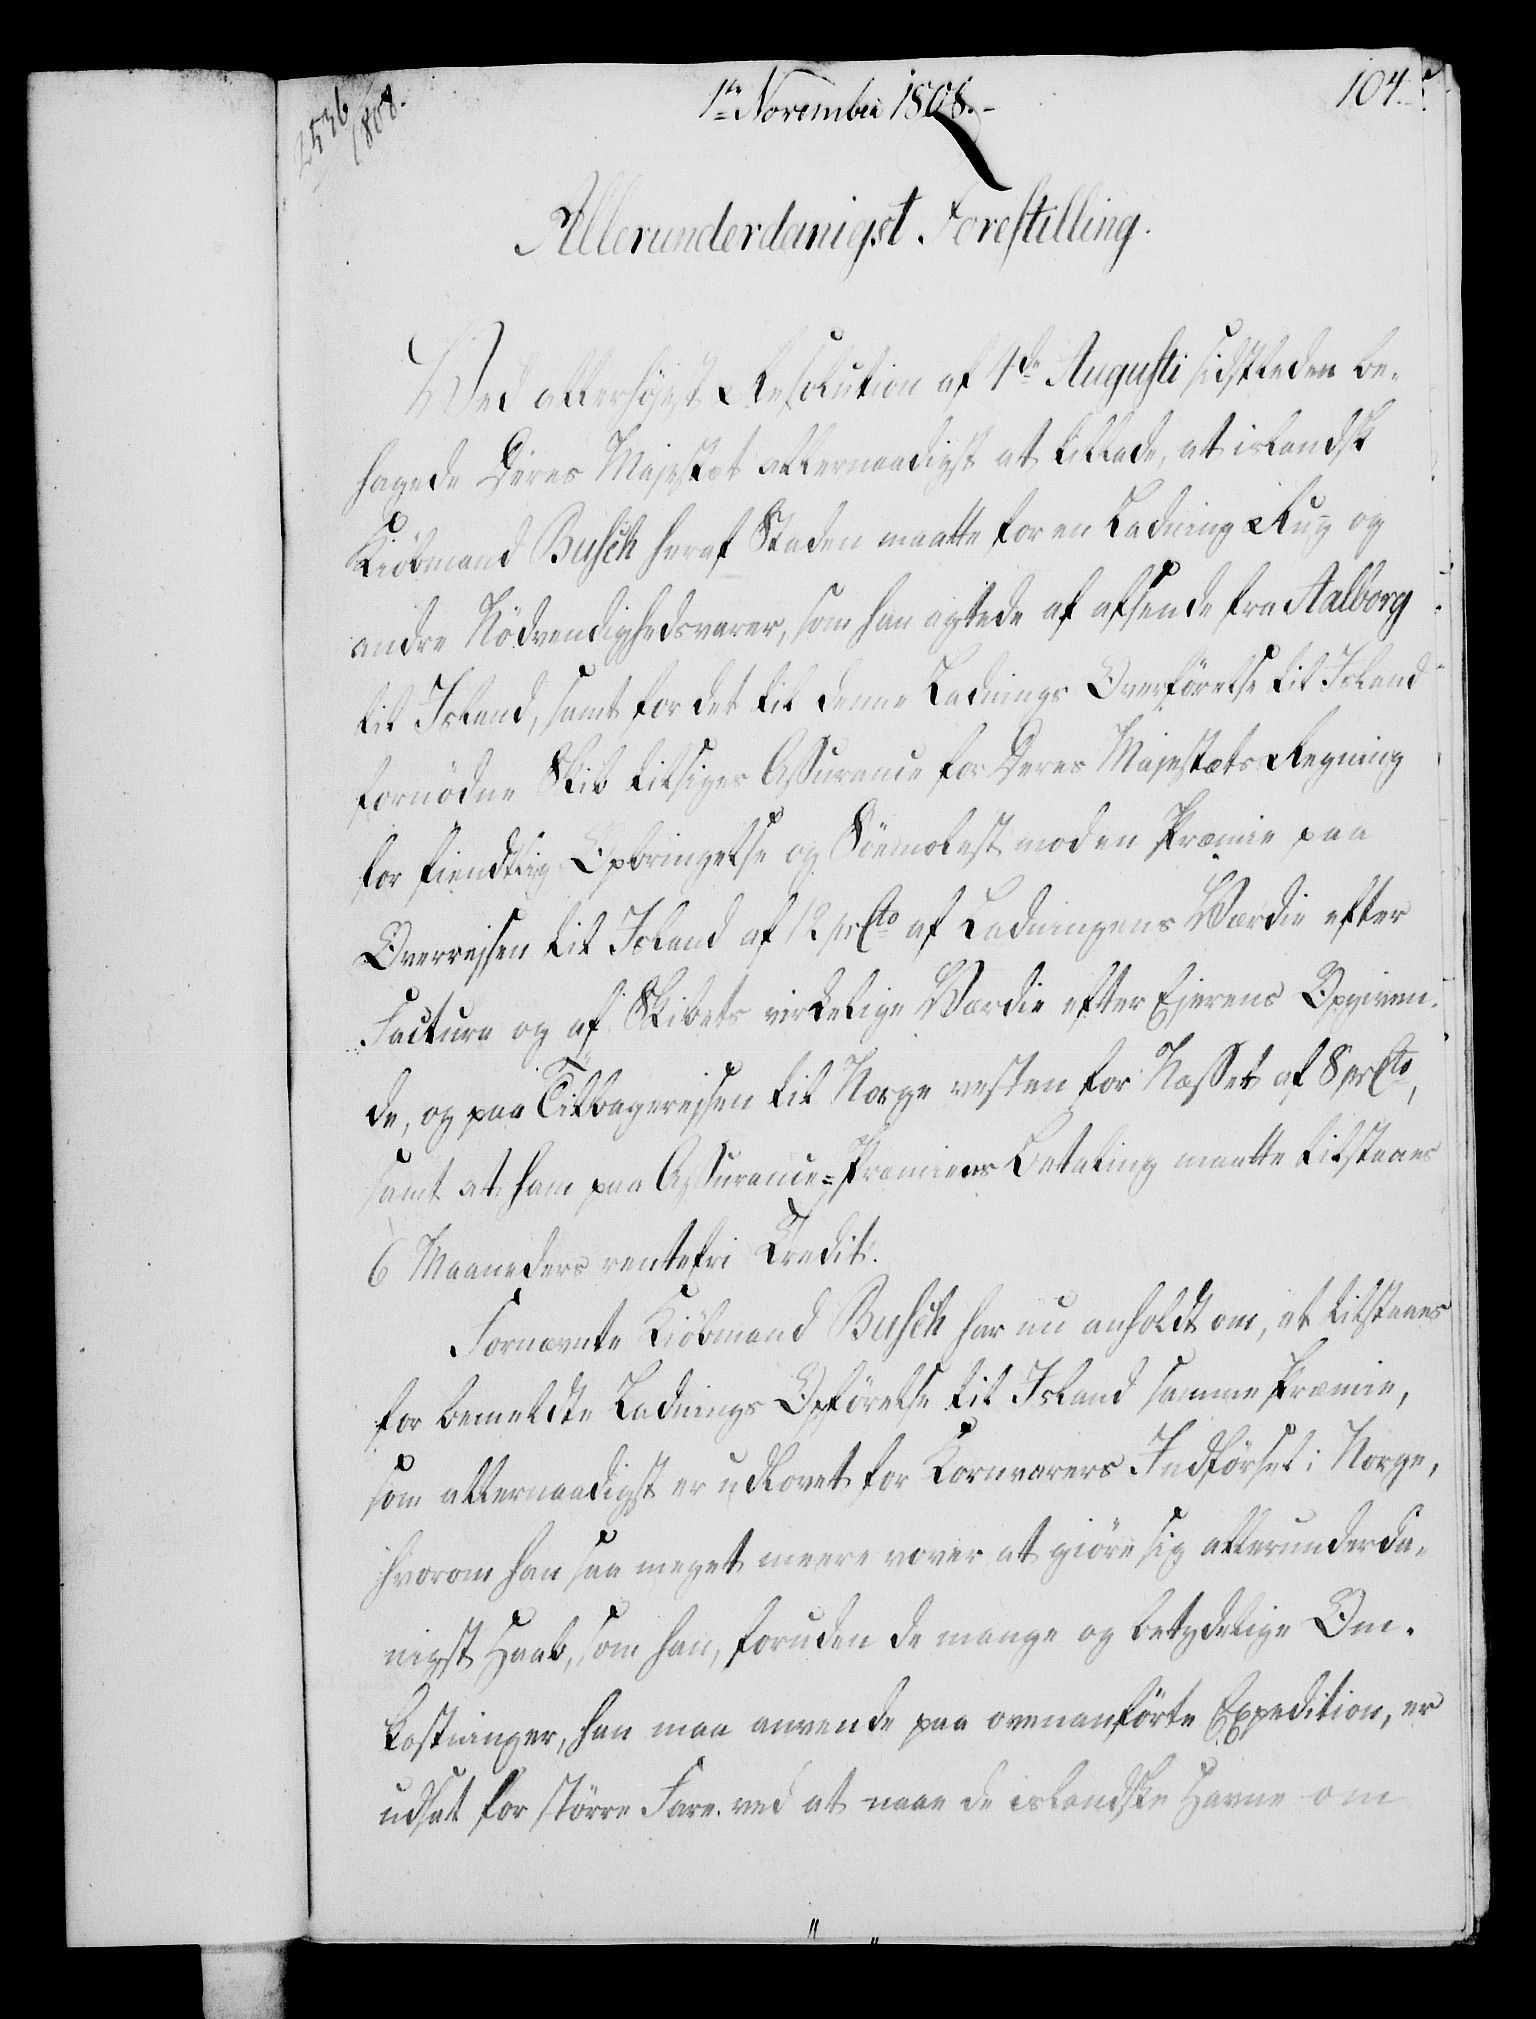 2536
1808.
1te November 1808.-
104.
Allerunderdanigst Forestilling.
Ved allerhöjest Resolution af 4de Augusti sidstleden be-
hagede Deres Majestæt allernaadigst at tillade, at islandsk
Kiöbmand Busch heraf Staden maatte for en Ladning Rug og
andre Nödvendighedsvarer, som han agtede af afsende fra Aalborg
til Island, samt for det til denne Ladnings Overförelse til Island
fornödne Skib tilsiges Assurance for Deres Majestæts Regning
for fiendtlig Opbringelse og Söemolest mod en Præmie paa
Overrejsen til Island af 12 prCto af Ladningens Værdie efter
Factura og af Skibets virkelige Værdie efter Ejerens Opgiven-
de, og paa Tilbagerejsen til Norge vesten for Næsset af 8 prCto,
samt at ham paa Assurance-Præmiens Betaling maatte tilstaaes
6 Maaneders rentefri Credit.
Fornævnte Kiöbmand Busch har nu anholdt om, at tilstaaes
for bemeldte Ladnings Opförelse til Island samme Præmie,
som allernaadigst er udlovet for Kornvarers Indförsel i Norge,
hvorom han saa meget meere vover at giöre sig allerunderda-
nigst Haab, som han, foruden de mange og betydelige Om-
kostninger, han maa anvende paa ovenanförte Expedition, er
udsat for större Fare ved at naae de islandske Havne om